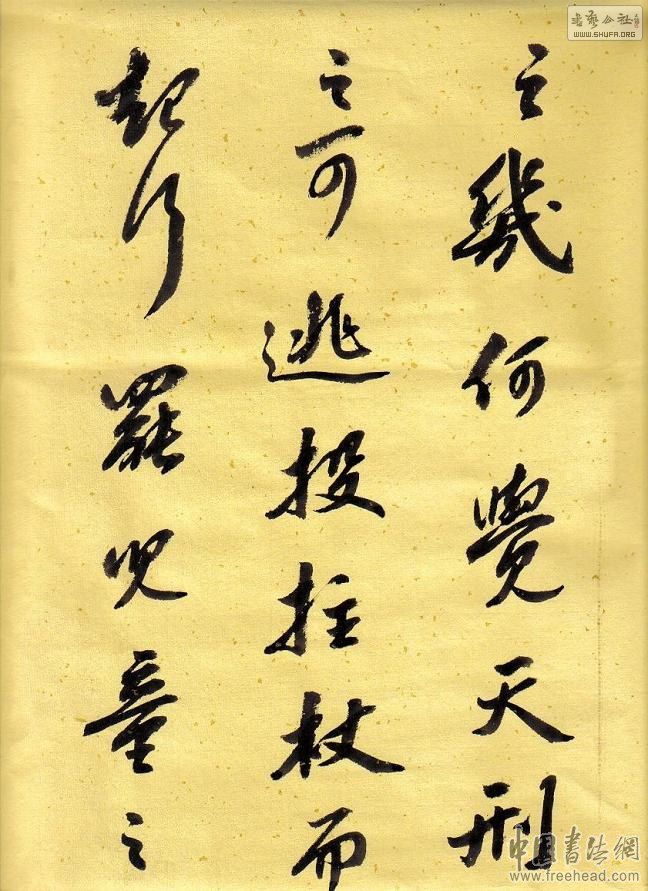 之幾何覺天刑
之可逃投拄杖而
起行罷兒童之
書藝公社
WWW.SHUFA.ORG
中国书法網
www.freehead.com